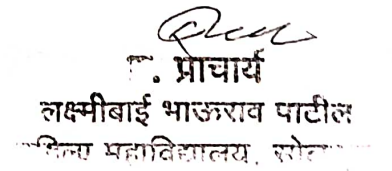 प्राचार्य
लक्ष्मीबाई भाऊराव पाटील
महिला महाविद्यालय, सोला